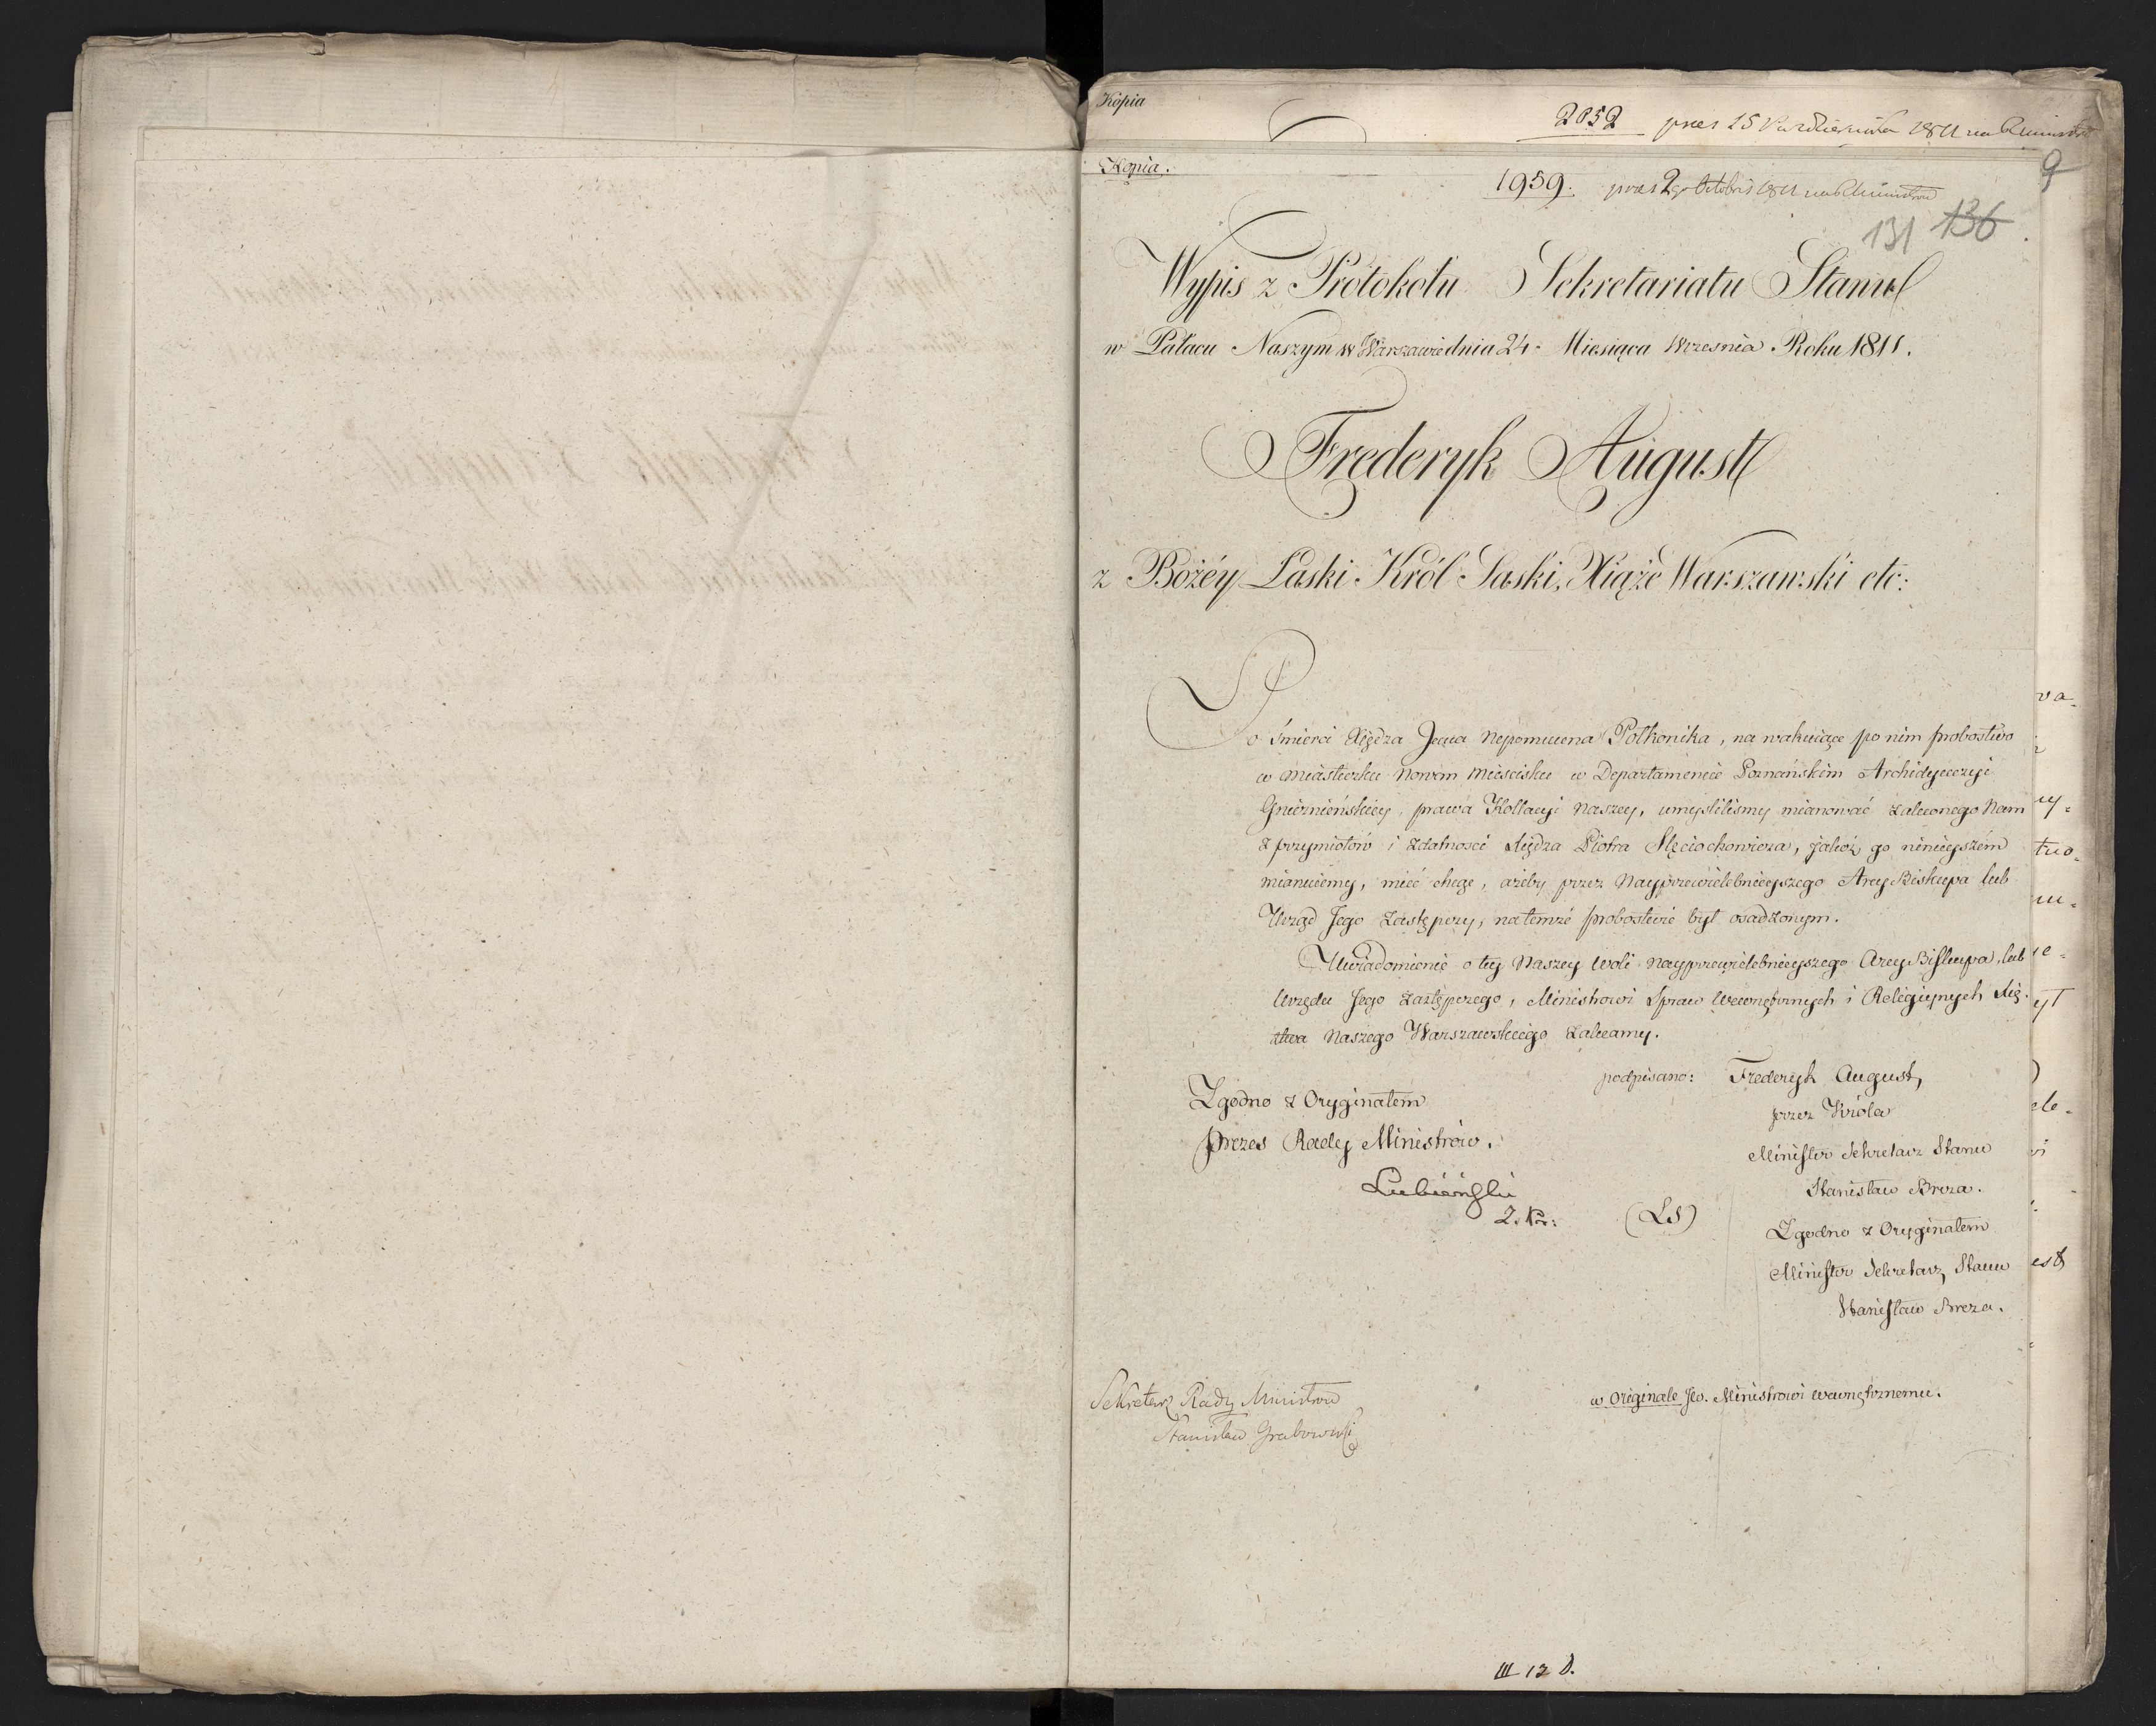 Kopia
2052 praes 15 Października 1811 na R Ministrów
Kopia.
9
1959. praes 2go Octobris 1811 na R Ministrów
131 136
Wypis z Protokołu Sekretariatu Stanu
w Pałacu Naszym w Warszawie dnia 24. Miesiąca Wrzesnia Roku 1811.
Frederyk August
z Bożéy Łaski Król Saski, Xiąże Warszawski etc:
Po śmierci Xiędza Jana Nepomucena Połkonika, na wakuiące po nim probostwo
w miasteczku Nowem Miescisku w Departamencie Poznańskim Archidyecezyi
Gnieznieńskiey, prawa Kollacyi Naszey, umyslilismy mianować zaleconego Nam
z przymiotów i zdatnosci Xiędza Piotra Stęciochowicza, jakoż go ninieyszém
mianuiemy, mieć chcąc, ażeby przez Nayprzewielebnieyszego Arcy Biskupa lub
Urząd Jego zastępczy, na temże probostwie był osadzonym.
Uwiadomienie o tey Naszey woli Nayprzewielebnieyszego Arcy Biskupa, lub
Urzędu Jego zastępczego, Ministrowi Spraw Wewnętrznych i Religiynych Xię-
ztwa Naszego Warszawskiego zalecamy.
podpisano: Frederyk August,
przez Króla
Minister Sekretarz Stanu
Stanisław Breza.
Zgodno z Oryginałem
Prezes Rady Ministrów.
Lubieński
Z. Pr:
(LS)
Zgodno z Oryginałem
Minister Sekretarz Stanu
Stanisław Breza.
Sekretarz Rady Ministrów
Stanisław Grabowski
w Originale Jw. Ministrowi wewnętrznemu.
III 12 D.
va-
uy-
two-
yt
ele-
est